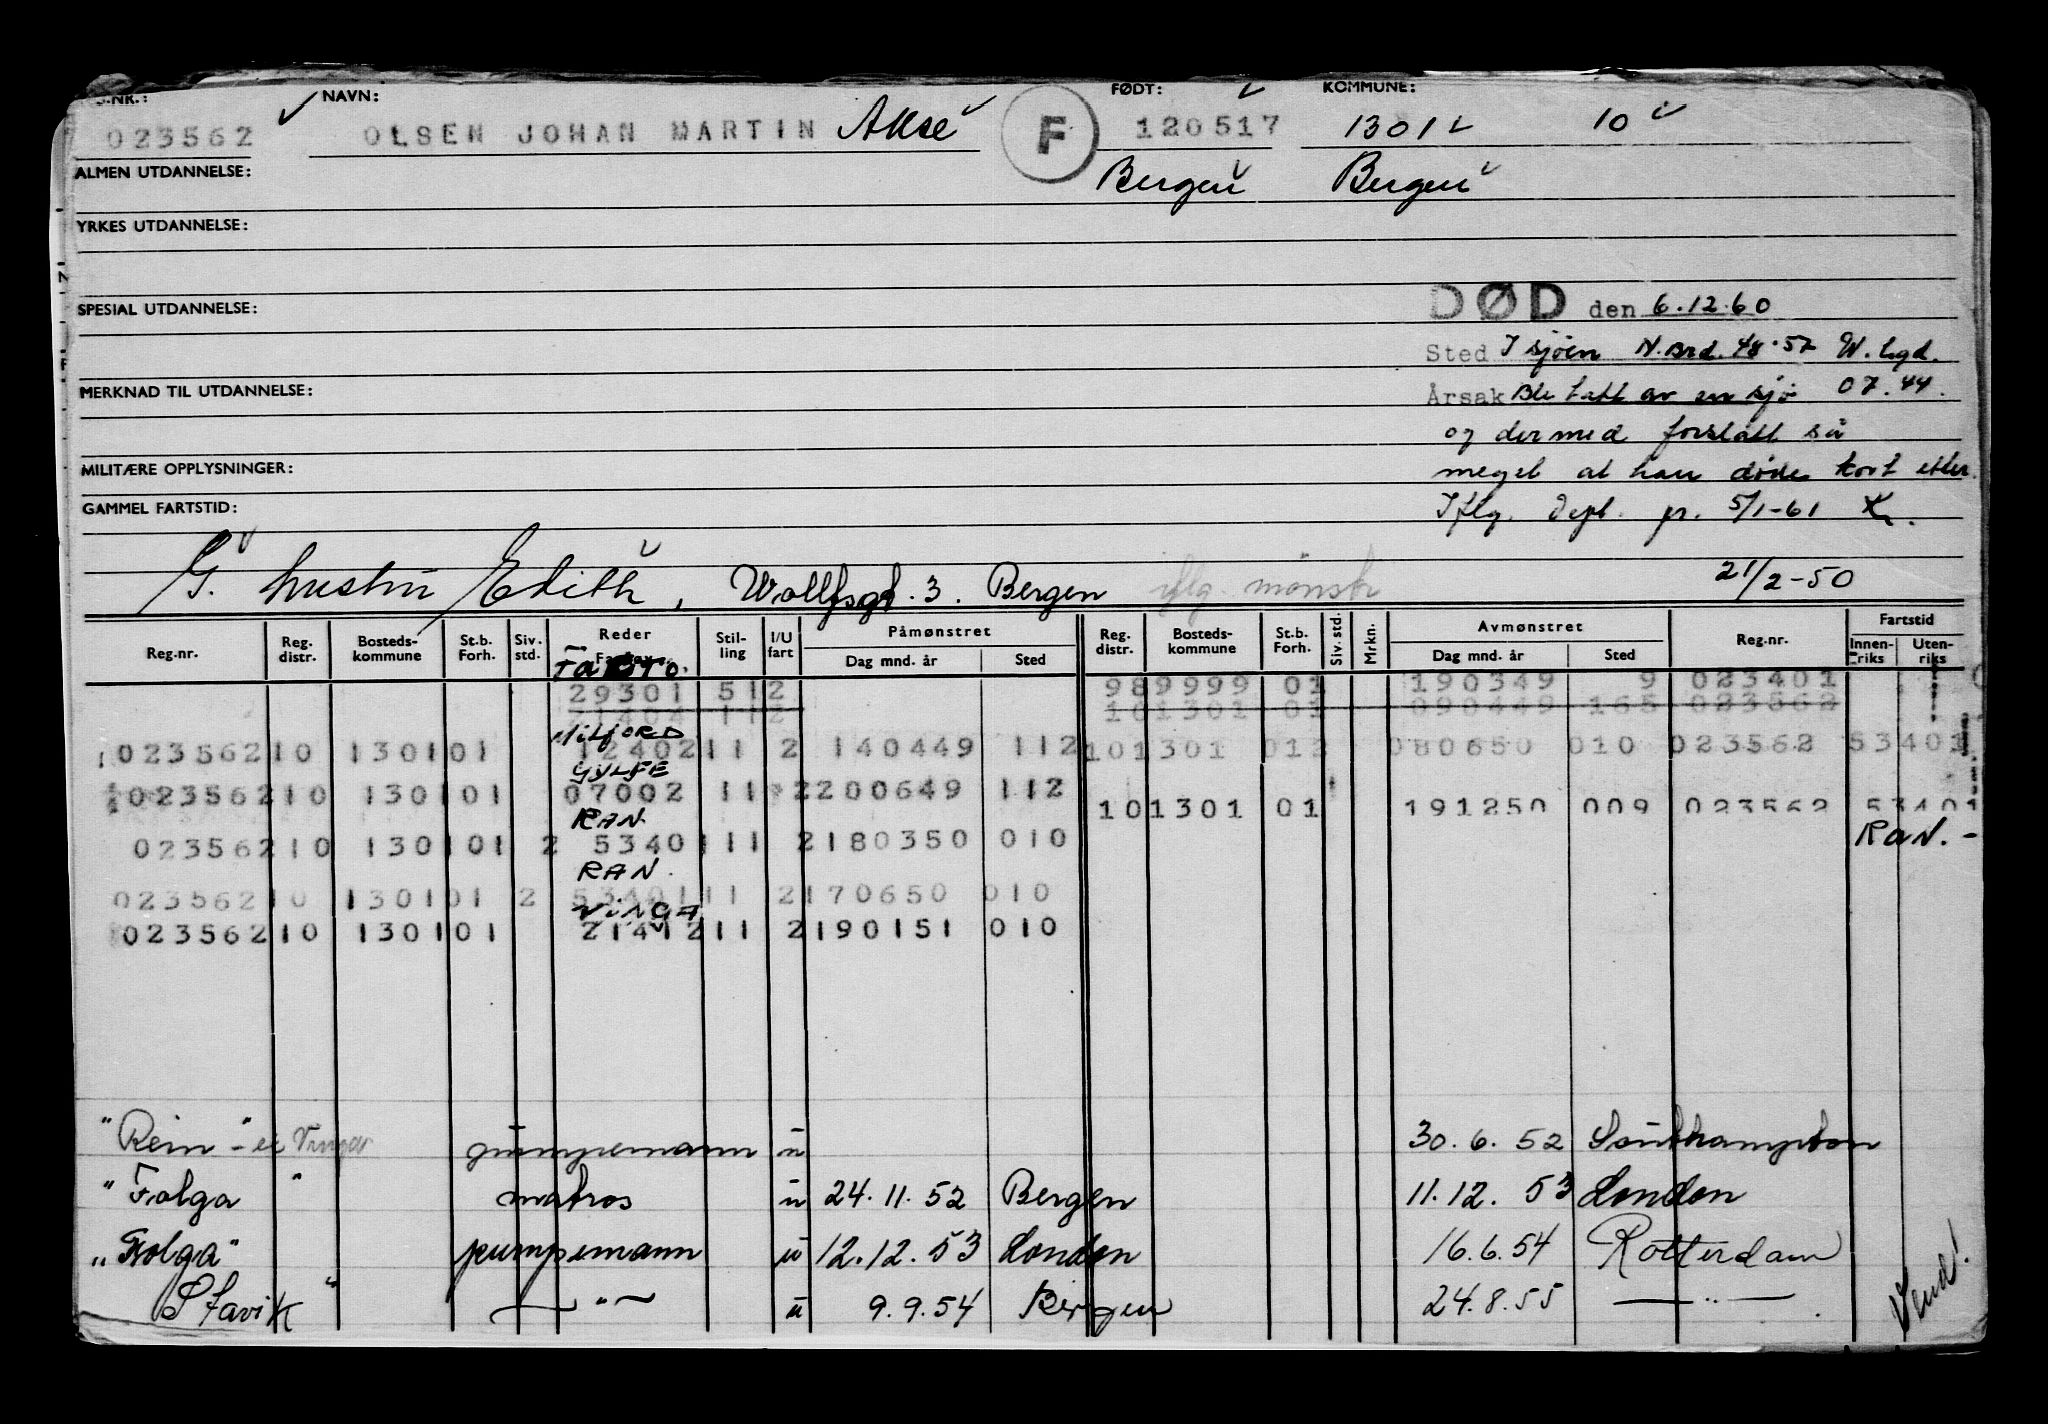 S.NR.: NAVN: FØDT: KOMMUNE:
023562 OLSEN JOHAN MARTIN Akse F 120517 1301 10
ALMEN UTDANNELSE: Bergen Bergen
YRKES UTDANNELSE:
SPESIAL UTDANNELSE: DØD den 6.12.60
Sted I sjøen N.Brd. 48.57 W.lgd.
MERKNAD TIL UTDANNELSE: Årsak Ble tatt av en sjø 07.44.
og dermed forslått så
MILITÆRE OPPLYSNINGER: meget at han døde kort etter.
GAMMEL FARTSTID: Iflg. Dept. pr. 5/1-61
G. hustru Edith, Wollfsgt. 3. Bergen iflg. mønstr 21/2-50
Reg.nr. Reg. distr. Bosteds-kommune St.b. Forh. Siv. std. Reder Stil-ling I/U fart Påmønstret Dag mnd. år Sted Reg. distr. Bosteds-kommune St.b. Forh. Siv. std. Mrkn. Avmønstret Dag mnd. år Sted Reg.nr. Fartstid Innen-riks Uten-riks
29301 512 989999 01 190349 9 023401
21404 112 101301 01 090449 165 023562
MILFORD
023562 10 1301 01 12402 11 2 140449 112 101301 012 080650 010 023562 53401
GYLFE
023562 10 1301 01 07002 11 2 200649 112 101301 01 191250 009 023562 53401
RAN
023562 10 1301 01 2 53401 11 2 180350 010 RAN. -
RAN.
023562 10 1301 01 2 53401 11 2 170650 010
VINGA
023562 10 1301 01 21412 11 2 190151 010
"Rein" - ex Vinga pumpemann u 30.6.52 Southampton
"Folga" matros u 24.11.52 Bergen 11.12.53 London
"Folga" pumpemann u 12.12.53 London 16.6.54 Rotterdam
Stavik " — " — u 9.9.54 Bergen 24.8.55 — " —
Vend!